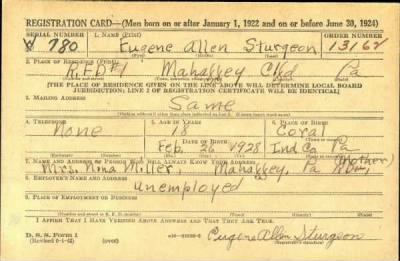 REGISTRATION CARD—(Men born on or after January 1, 1922 and on or before June 30, 1924)
SERIAL NUMBER 1. NAME (Print) ORDER NUMBER
W 780 Eugene Allen Sturgeon 13162
2. PLACE OF RESIDENCE (Print)
R.F.D #1 Mahaffey Clfd Pa
[THE PLACE OF RESIDENCE GIVEN ON THE LINE ABOVE WILL DETERMINE LOCAL BOARD
JURISDICTION; LINE 2 OF REGISTRATION CERTIFICATE WILL BE IDENTICAL]
3. MAILING ADDRESS
Same
4. TELEPHONE 5. AGE IN YEARS 6. PLACE OF BIRTH
None 18 Coral
DATE OF BIRTH
Feb. 26 1928 Ind Co. Pa
7. NAME AND ADDRESS OF PERSON WHO WILL ALWAYS KNOW YOUR ADDRESS
(Mother)
Mrs. Nina Miller, Mahaffey, Pa
8. EMPLOYER'S NAME AND ADDRESS
Unemployed
9. PLACE OF EMPLOYMENT OR BUSINESS
I AFFIRM THAT I HAVE VERIFIED ABOVE ANSWERS AND THAT THEY ARE TRUE.
D. S. S. Form 1
(Revised 6-1-42) (over)
Eugene Allen Sturgeon